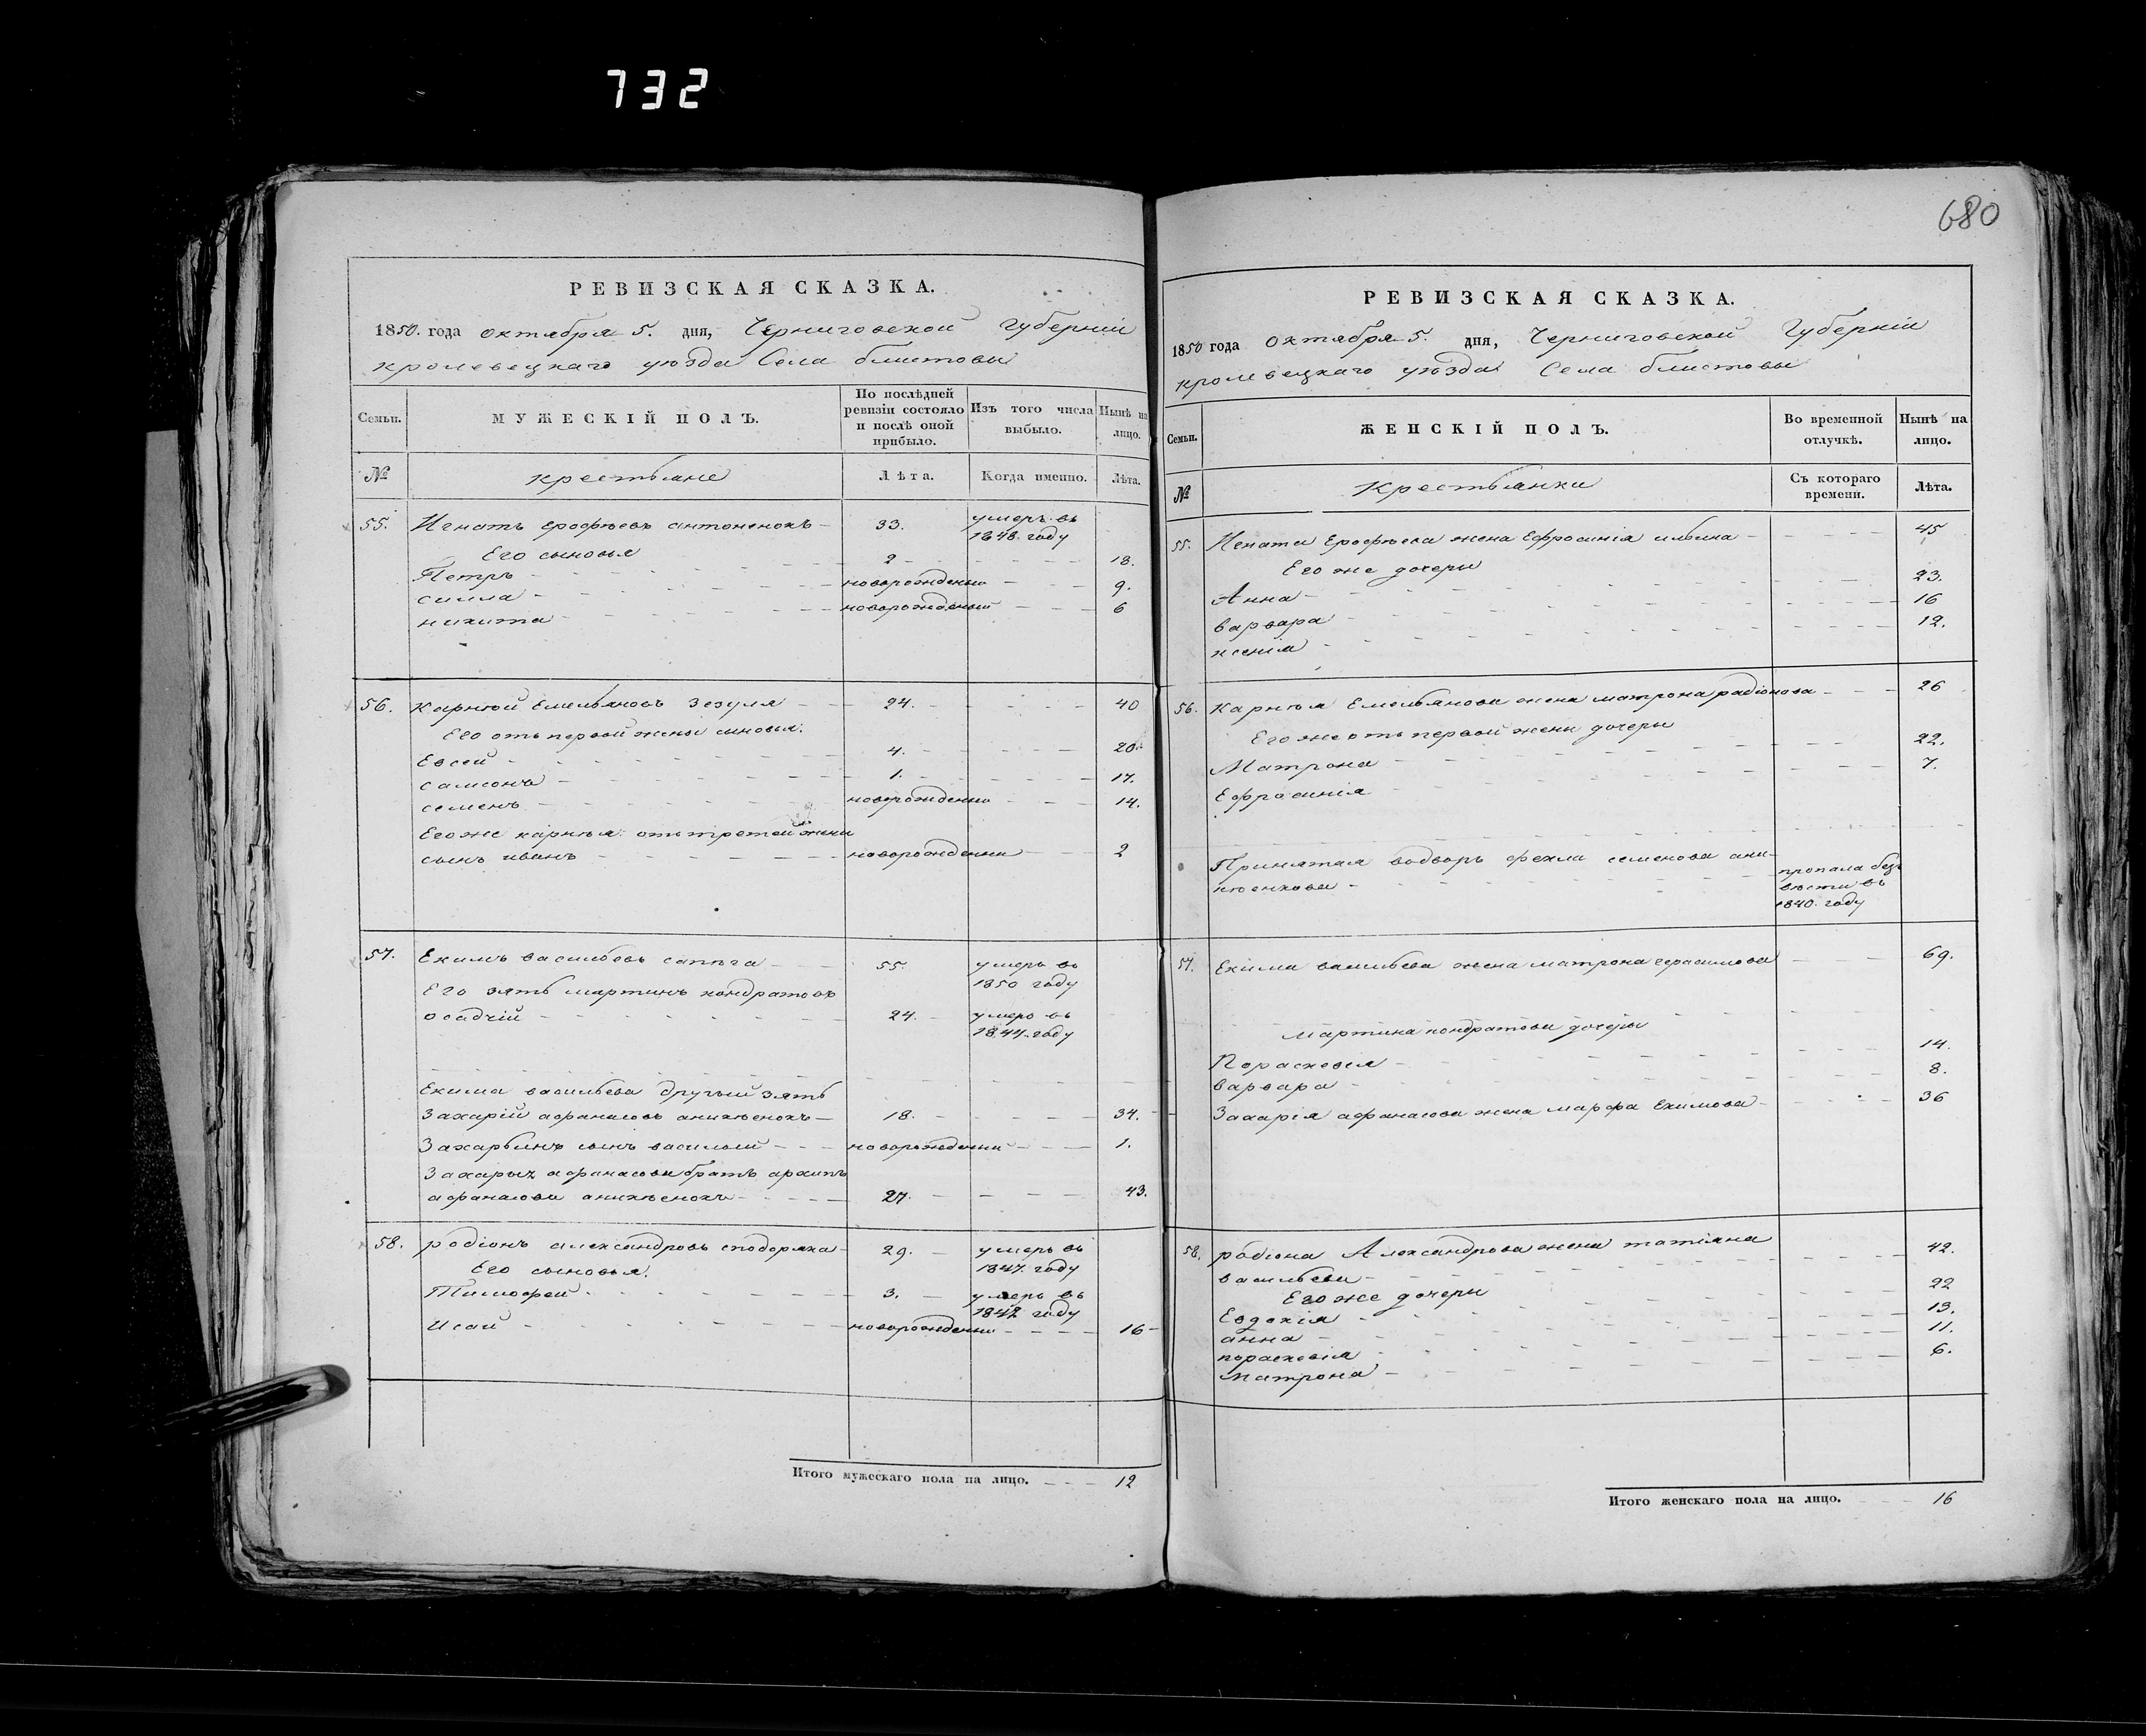 732
680
РЕВИЗСКАЯ СКАЗКА.
1850. года октября 5. дня, Черниговской губерніи
кролевецкаго уюзда Села блистовы
Семьи.
МУЖЕСКІЙ ПОЛЪ.
По послѣдней ревизіи состояло и послѣ оной прибыло.
Изъ того числа выбыло.
Нынѣ на лицо.
№
крестьяне
Лѣта.
Когда именно.
Лѣта.
55. Игнатъ ерофѣевъ антоненокъ 33. умеръ въ
1848. году
Его сыновья
Петръ 2 18.
сила новорожденны 9.
никита новорожденый 6
56. карнѣй Емельяновъ Зезуля 24. 40
Его отъ первой жены сыновья.
Евсей 4. 20.
самсонъ 1. 17.
семенъ новорожденны 14.
Егоже карнѣя отъ третей жены
сынъ иванъ новорожденны 2
57. Екимъ васильевъ сапѣга 55. умеръ въ
1850 году
Его зять мартинъ кондратовъ
осадчій 24. умеръ въ
1844. году
Екима васильева другий зять
Захарій афанасовъ аникѣенокъ 18. 34.
Захарьинъ сынъ василий новорожденны 1.
Захарья афанасова братъ архипъ
афанасова аникѣенокъ 27. 43.
58. родіонъ александровъ сподоряка 29. умеръ въ
1847. году
Его сыновья.
Тимофей 3. умеръ въ
1842 году
Исай новорожденны 16
Итого мужескаго пола на лицо. 12
РЕВИЗСКАЯ СКАЗКА.
1850 года октября 5. дня, Черниговской Губерніи
кролевецкаго уюзда Села блистовы
Семьи.
ЖЕНСКІЙ ПОЛЪ.
Во временной отлучкѣ.
Нынѣ на лицо.
№
Крестьянки
Съ котораго времени.
Лѣта.
55. Игната Ерофѣева жена Ефросинія ильина 45
Его же дочеры
Анна 23.
варвара 16
ксенія 12.
56. Карнѣя Емельянова жена матрона радіонова 26
Его же отъ первой жены дочеры
Матрона 22.
Ефросинія 7.
Принятая водворъ фекла семенова ани-
кѣенкова пропала безъ
вѣсти въ
1840. году
57. Екима васильева жена матрона герасимова 69.
мартина кондратова дочеры
Порасковія 14.
варвара 8.
Захарія афанасова жена марфа Екимова 36
58. родіона Александрова жена татіана 42.
васильева
Его же дочеры
Евдокія 22
анна 13.
порасковія 11.
матрона 6.
Итого женскаго пола на лицо. 16